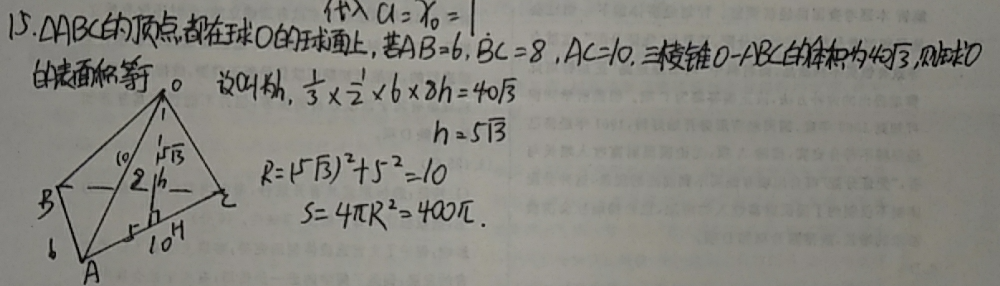 代入 a = x₀ = 1
15. △ABC的顶点都在球O的球面上, 若AB=6, BC=8, AC=10, 三棱锥O-ABC的体积为40√3, 则球O
的表面积等于
设OH为h, 1/3 × 1/2 × 6 × 8h = 40√3
h = 5√3
R = (5√3)² + 5² = 10
S = 4πR² = 400π.
O
10
5√3
B
2
h
C
6
5
10
H
A